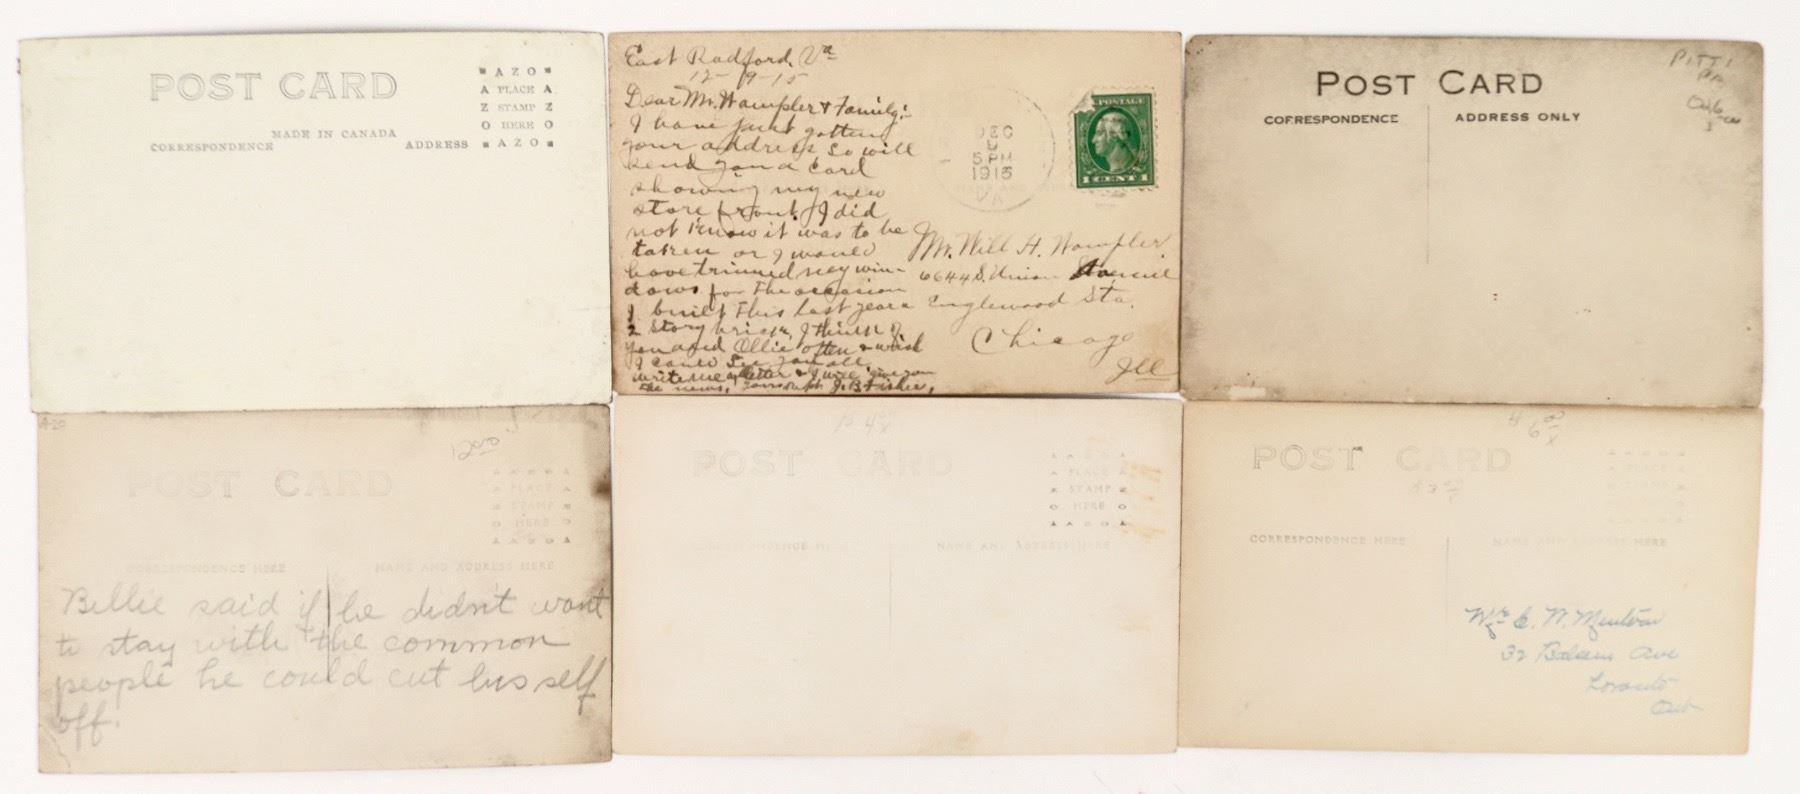 POST CARD
MADE IN CANADA
CORRESPONDENCE ADDRESS
AZO
A PLACE A
Z STAMP Z
O HERE O
AZO
East Radford, Va
12-9-15
Dear Mr. Wampler & Family:-
I have just gotten
your address so will
send you a card
showing my new
store front. I did
not know it was to be
taken or I would
have trimmed my win-
dows for the occasion
I built this last year a
2 story brick, I think of
you and Ollie often & wish
I could see you all.
write me a letter & I will give you
the news, J. B. Fisher,
DEC
9
5 PM
1915
VA
POSTAGE
1 CENT 1
Mr. Will H. Wampler
6644 S. Union
Englewood Sta.
Chicago
Ill
POST CARD
CORRESPONDENCE
ADDRESS ONLY
A-20
1200
POST CARD
PLACE
STAMP
HERE
CORRESPONDENCE HERE
NAME AND ADDRESS HERE
Billie said if he didn't want
to stay with the common
people he could cut his self
off.
POST CARD
PLACE
STAMP
HERE
CORRESPONDENCE HERE
NAME AND ADDRESS HERE
POST CARD
PLACE
STAMP
CORRESPONDENCE HERE
NAME AND ADDRESS HERE
32 Ave
Toronto
Ont